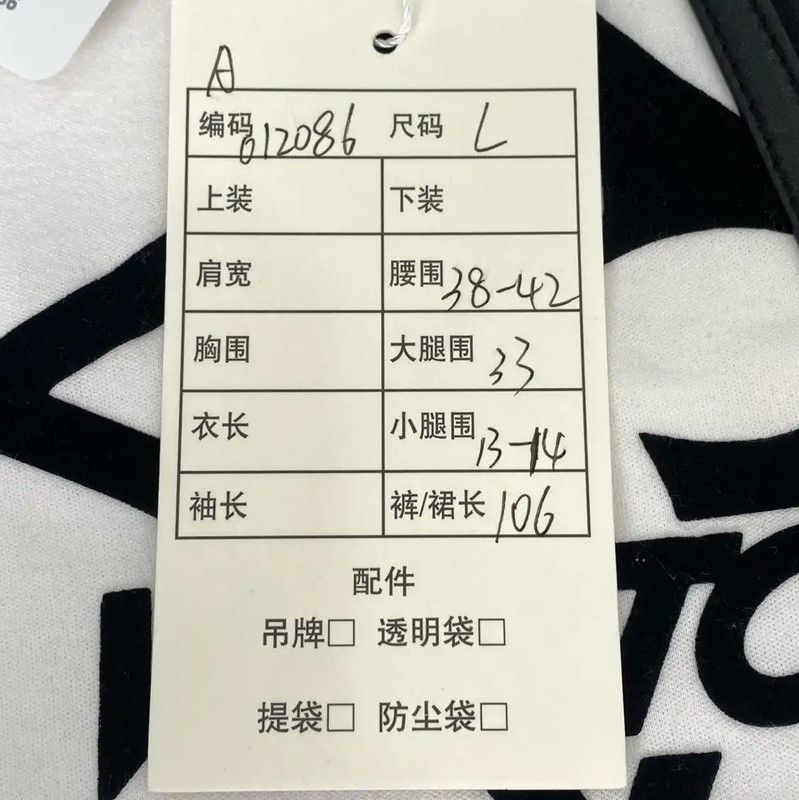 A
编码 012086 尺码 L
上装 下装
肩宽 腰围 38-42
胸围 大腿围 33
衣长 小腿围 13-14
袖长 裤/裙长 106
配件
吊牌□ 透明袋□
提袋□ 防尘袋□